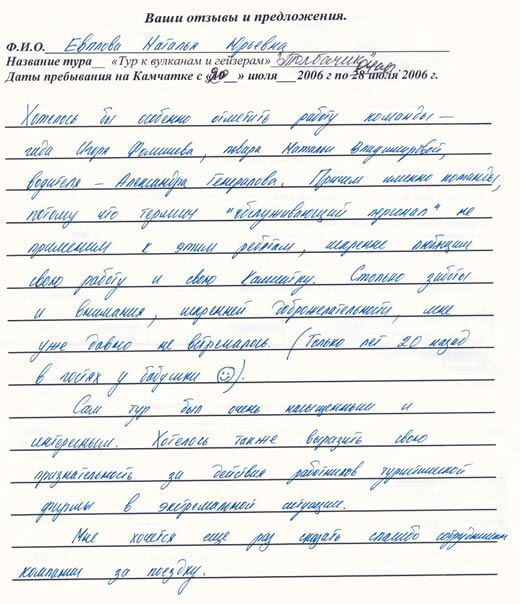 Ваши отзывы и предложения.
Ф.И.О. Евплова Наталья Юрьевна
Название тура «Тур к вулканам и гейзерам» "Толбачик"
Даты пребывания на Камчатке с «20» июля 2006 г по 28 июля 2006 г.
Хотелось бы особенно отметить работу команды –
гида Игоря Фомишева, повара Натальи Владимировой,
водителя – Александра Генералова. Причём именно команды,
потому что термин "обслуживающий персонал" не
применим к этим ребятам, искренне любящим
свою работу и свою Камчатку. Столько заботы
и внимания, искренней доброжелательности, мне
уже давно не встречалось. (Только лет 20 назад
в гостях у бабушки ☺).
Сам тур был очень насыщенным и
интересным. Хотелось также выразить свою
признательность за действия работников туристической
фирмы в экстремальной ситуации.
Мне хочется ещё раз сказать спасибо сотрудникам
компании за поездку.